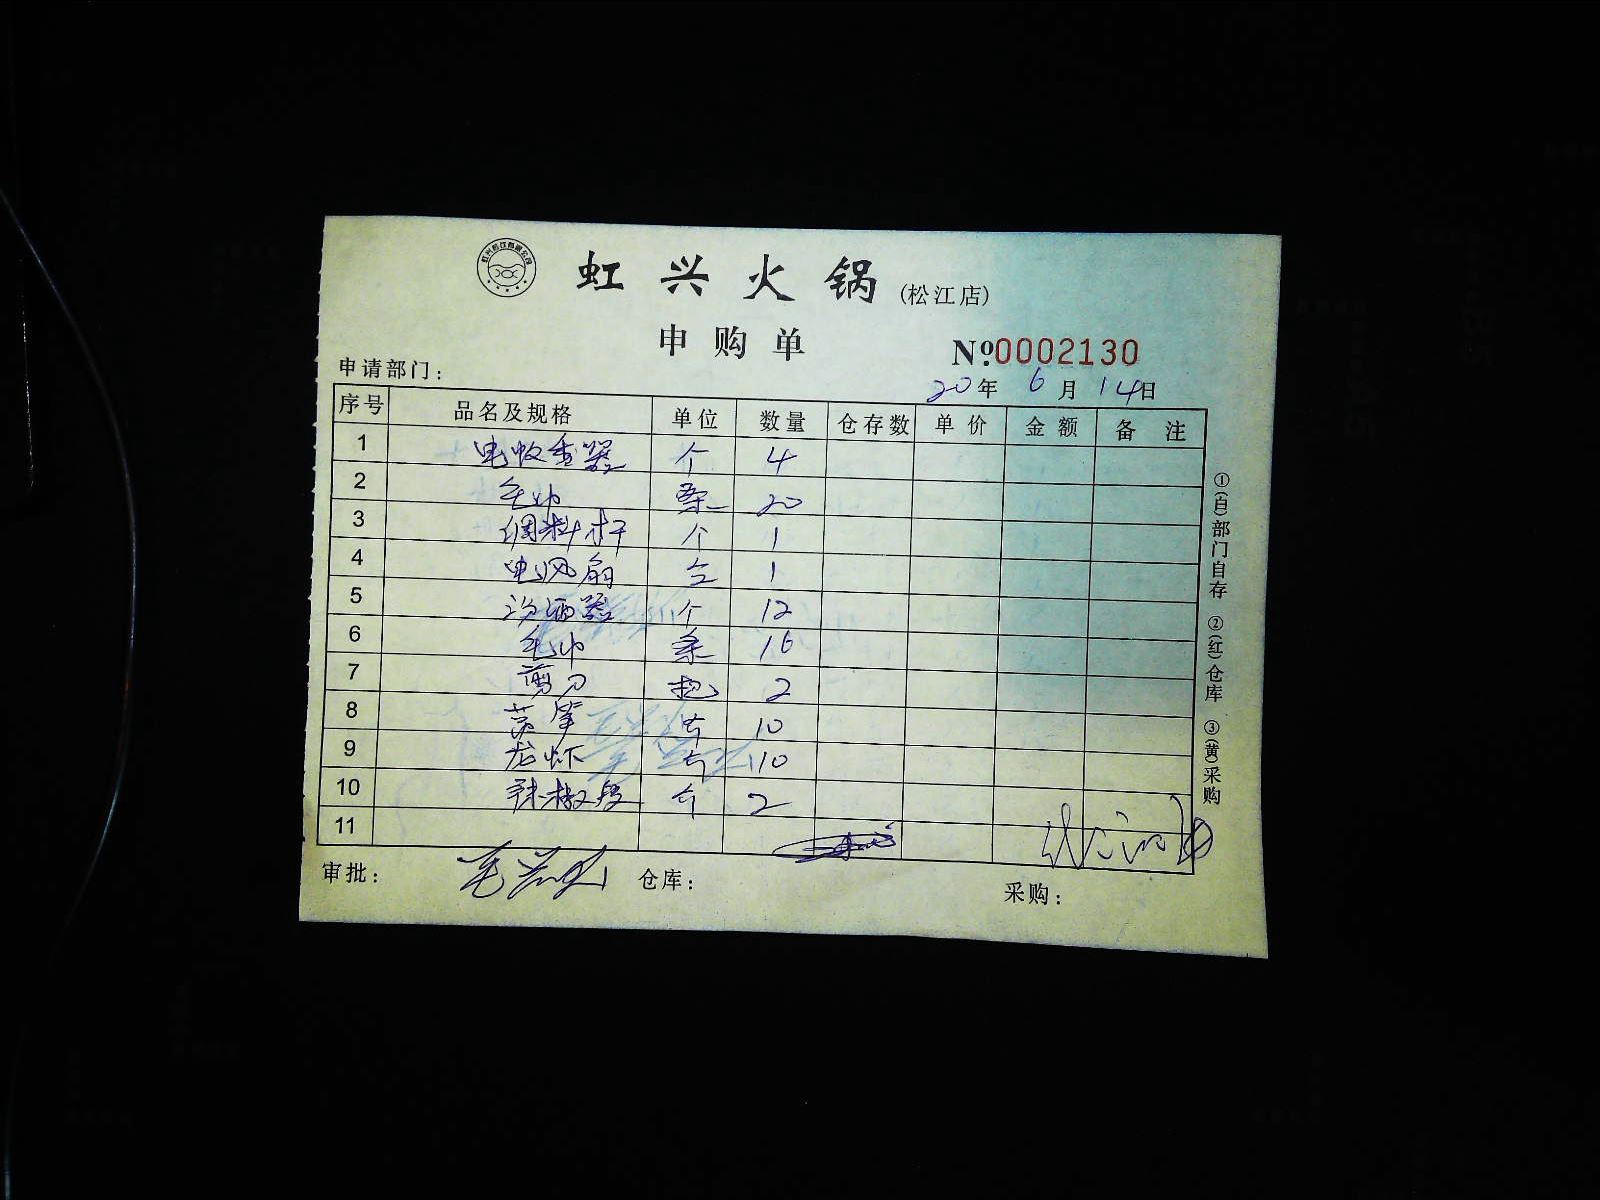 虹兴火锅 (松江店)
申购单
№0002130
申请部门:
20年 6月 14日
序号 品名及规格 单位 数量 仓存数 单价 金额 备注
1 电 器 个 4
2 毛巾 条 20
3 调料杆 个 1
4 电风扇 台 1
5 分酒器 个 12
6 毛巾 条 16
7 剪刀 把 2
8 10
9 龙虾 110
10 辣椒段 个 2
11
审批: 仓库: 采购:
①(白)部门自存 ②(红)仓库 ③(黄)采购